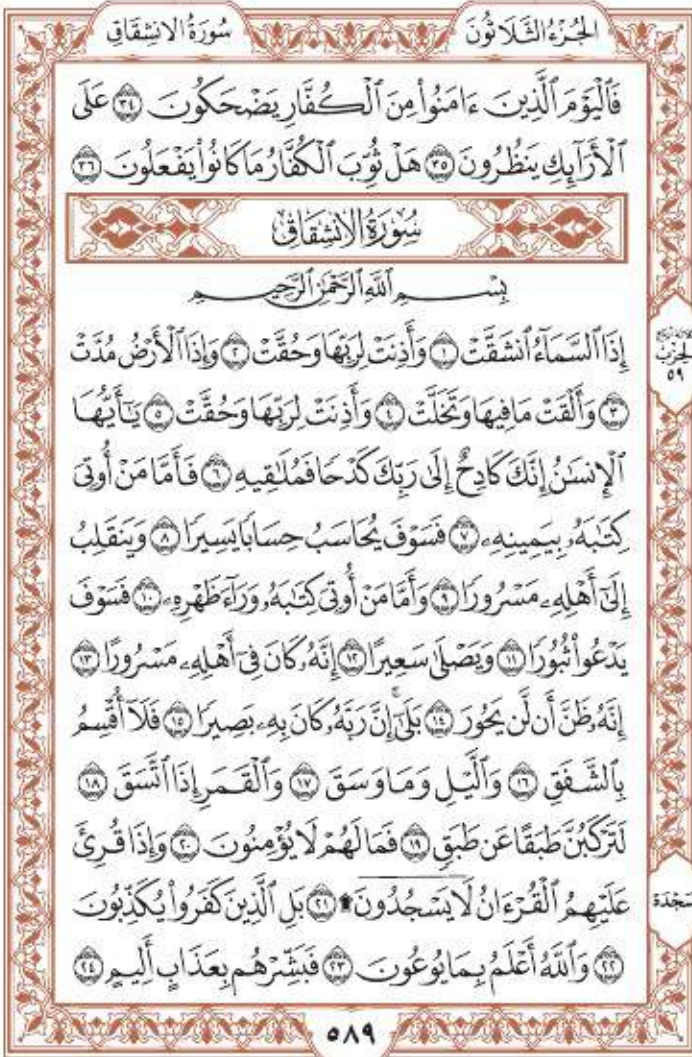 سُورَةُ الانشِقَاقِ
الجُزْءُ الثَّلَاثُونَ
فَٱلْيَوْمَ ٱلَّذِينَ ءَامَنُوا۟ مِنَ ٱلْكُفَّارِ يَضْحَكُونَ ٣٤ عَلَى
ٱلْأَرَآئِكِ يَنظُرُونَ ٣٥ هَلْ ثُوِّبَ ٱلْكُفَّارُ مَا كَانُوا۟ يَفْعَلُونَ ٣٦
سُورَةُ الانشِقَاقِ
بِسْمِ ٱللَّهِ ٱلرَّحْمَٰنِ ٱلرَّحِيمِ
إِذَا ٱلسَّمَآءُ ٱنشَقَّتْ ١ وَأَذِنَتْ لِرَبِّهَا وَحُقَّتْ ٢ وَإِذَا ٱلْأَرْضُ مُدَّتْ
٣ وَأَلْقَتْ مَا فِيهَا وَتَخَلَّتْ ٤ وَأَذِنَتْ لِرَبِّهَا وَحُقَّتْ ٥ يَٰٓأَيُّهَا
ٱلْإِنسَٰنُ إِنَّكَ كَادِحٌ إِلَىٰ رَبِّكَ كَدْحًا فَمُلَٰقِيهِ ٦ فَأَمَّا مَنْ أُوتِىَ
كِتَٰبَهُۥ بِيَمِينِهِۦ ٧ فَسَوْفَ يُحَاسَبُ حِسَابًا يَسِيرًا ٨ وَيَنقَلِبُ
إِلَىٰٓ أَهْلِهِۦ مَسْرُورًا ٩ وَأَمَّا مَنْ أُوتِىَ كِتَٰبَهُۥ وَرَآءَ ظَهْرِهِۦ ١٠ فَسَوْفَ
يَدْعُوا۟ ثُبُورًا ١١ وَيَصْلَىٰ سَعِيرًا ١٢ إِنَّهُۥ كَانَ فِىٓ أَهْلِهِۦ مَسْرُورًا ١٣
إِنَّهُۥ ظَنَّ أَن لَّن يَحُورَ ١٤ بَلَىٰٓ إِنَّ رَبَّهُۥ كَانَ بِهِۦ بَصِيرًا ١٥ فَلَآ أُقْسِمُ
بِٱلشَّفَقِ ١٦ وَٱلَّيْلِ وَمَا وَسَقَ ١٧ وَٱلْقَمَرِ إِذَا ٱتَّسَقَ ١٨
لَتَرْكَبُنَّ طَبَقًا عَن طَبَقٍ ١٩ فَمَا لَهُمْ لَا يُؤْمِنُونَ ٢٠ وَإِذَا قُرِئَ
عَلَيْهِمُ ٱلْقُرْءَانُ لَا يَسْجُدُونَ ۩ ٢١ بَلِ ٱلَّذِينَ كَفَرُوا۟ يُكَذِّبُونَ
٢٢ وَٱللَّهُ أَعْلَمُ بِمَا يُوعُونَ ٢٣ فَبَشِّرْهُم بِعَذَابٍ أَلِيمٍ ٢٤
الحِزْبُ
٥٩
سَجْدَة
٥٨٩